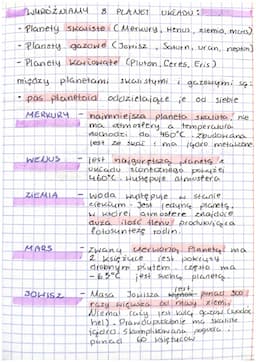 WYRÓŻNIAMY 8 PLANET UKŁADU:
• Planety skaliste (Merkury, Wenus, ziemia, mars)
• Planety gazowe (Jowisz, Saturn, uran, neptun)
• Planety karłowate (Pluton, Ceres, Eris)
między planetami skalistymi i gazowymi są:
• pas planetoid oddzielające je od siebie
MERKURY - najmniejsza planeta skalista, nie
ma atmosfery a temperatura
dochodzi do 450°C. zbudowana
jest ze skał i ma jądro metaliczne
WENUS - jest najgorętszą planetą z
układu słonecznego powyżej
460°C. Występuje atmosfera
ZIEMIA - woda występuje w stanie
ciekłym. Jest jedyną planetą,
w której atmosferze znajduje
duża ilość tlenu produkująca
fotosyntezę roślin.
MARS - zwaną czerwoną Planetą ma
2 księżyce jest pokryty
drobnym pyłem. często ma
-65°C jest suchą planetą
JOWISZ - Masa Jowisza jest ponad 300
razy większa od masy ziemi.
Niemal cały jest kulą gazową (wodór
hel). Prawdopodobnie ma skaliste
jądro.
ponad 60 księżyców